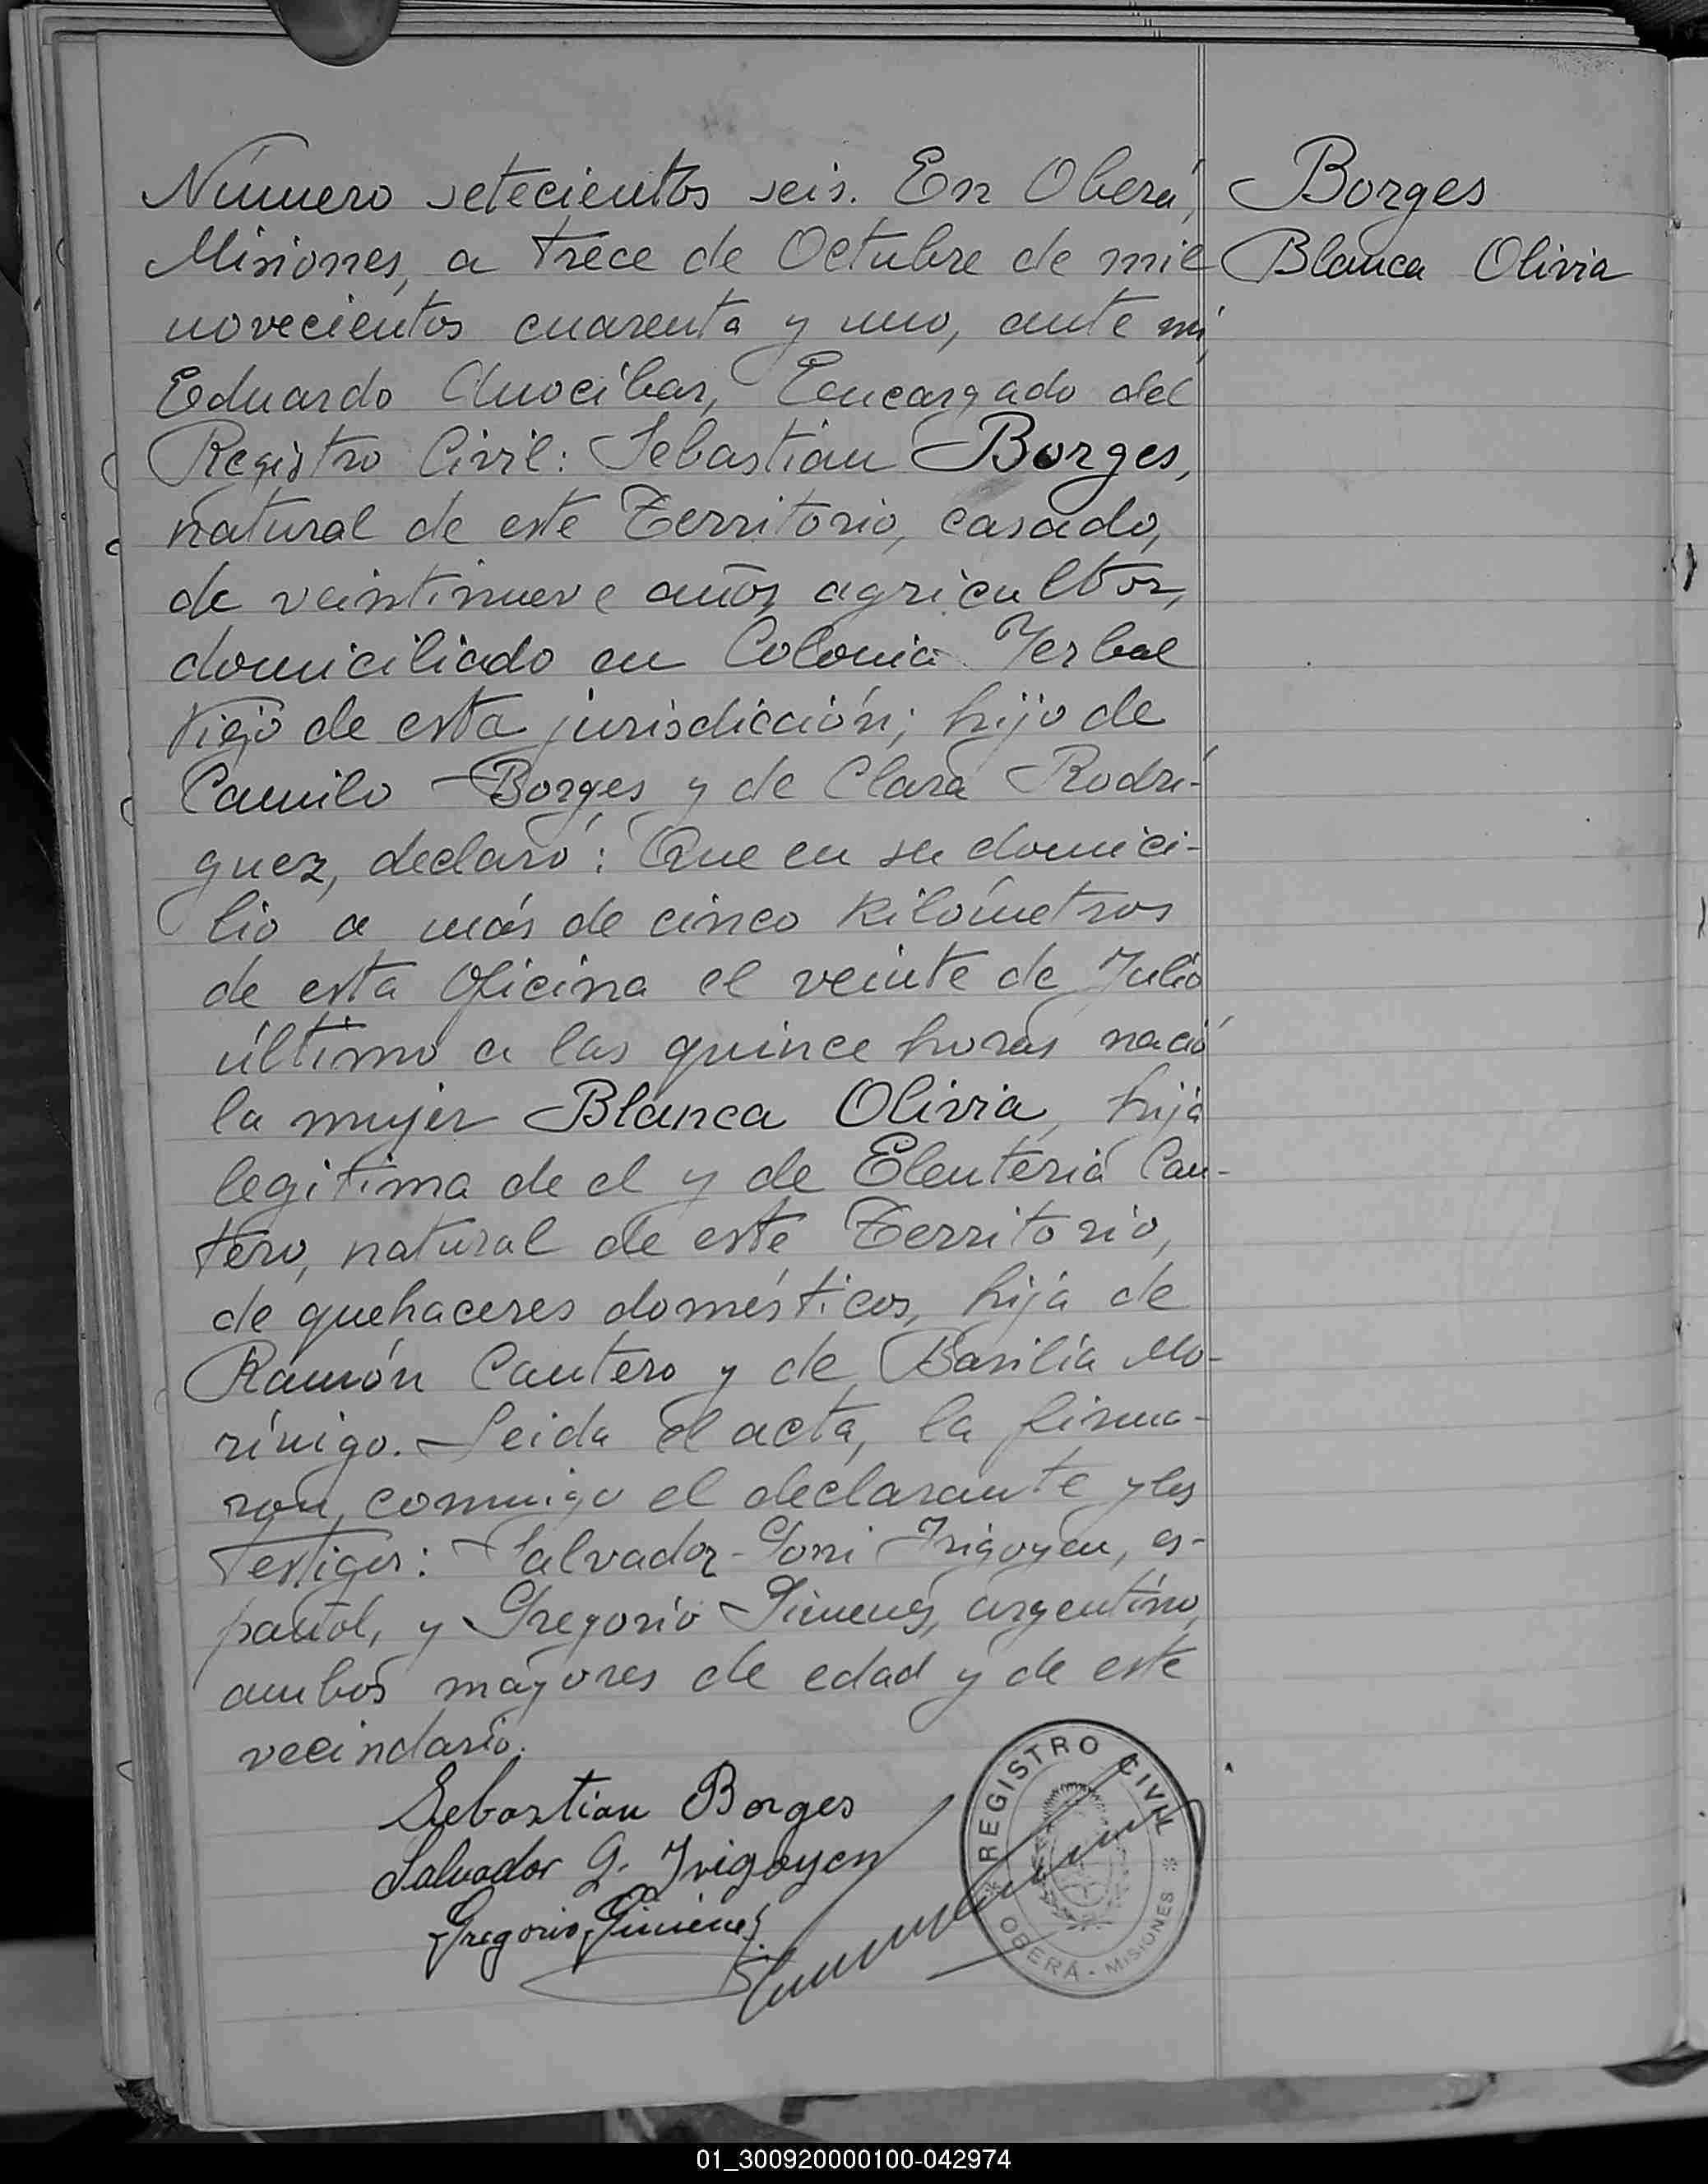 Número setecientos seis. En Oberá,
Misiones, a trece de Octubre de mil
novecientos cuarenta y uno, ante mí,
Eduardo Anocibar, Encargado del
Registro Civil: Sebastián Borges,
natural de este Territorio, casado,
de veintinueve años, agricultor,
domiciliado en Colonia Yerbal
Viejo de esta jurisdicción; hijo de
Camilo Borges y de Clara Rodrí-
guez, declaró: Que en su domici-
lio a más de cinco kilómetros
de esta Oficina el veinte de Julio
último a las quince horas nació
la mujer Blanca Olivia, hija
legitima de el y de Eleuteria Can-
tero, natural de este Territorio,
de quehaceres domésticos, hija de
Ramón Cantero y de Basilia Mo-
rínigo. Leida el acta, la firma-
ron conmigo el declarante y los
testigos: Salvador Goñi Irigoyen, es-
pañol, y Gregorio Gimenes, argentino,
ambos mayores de edad y de este
vecindario.
Sebastian Borges
Salvador G. Irigoyen
Gregorio Gimenes
REGISTRO CIVIL
OBERÁ - MISIONES
Borges
Blanca Olivia
01_300920000100-042974